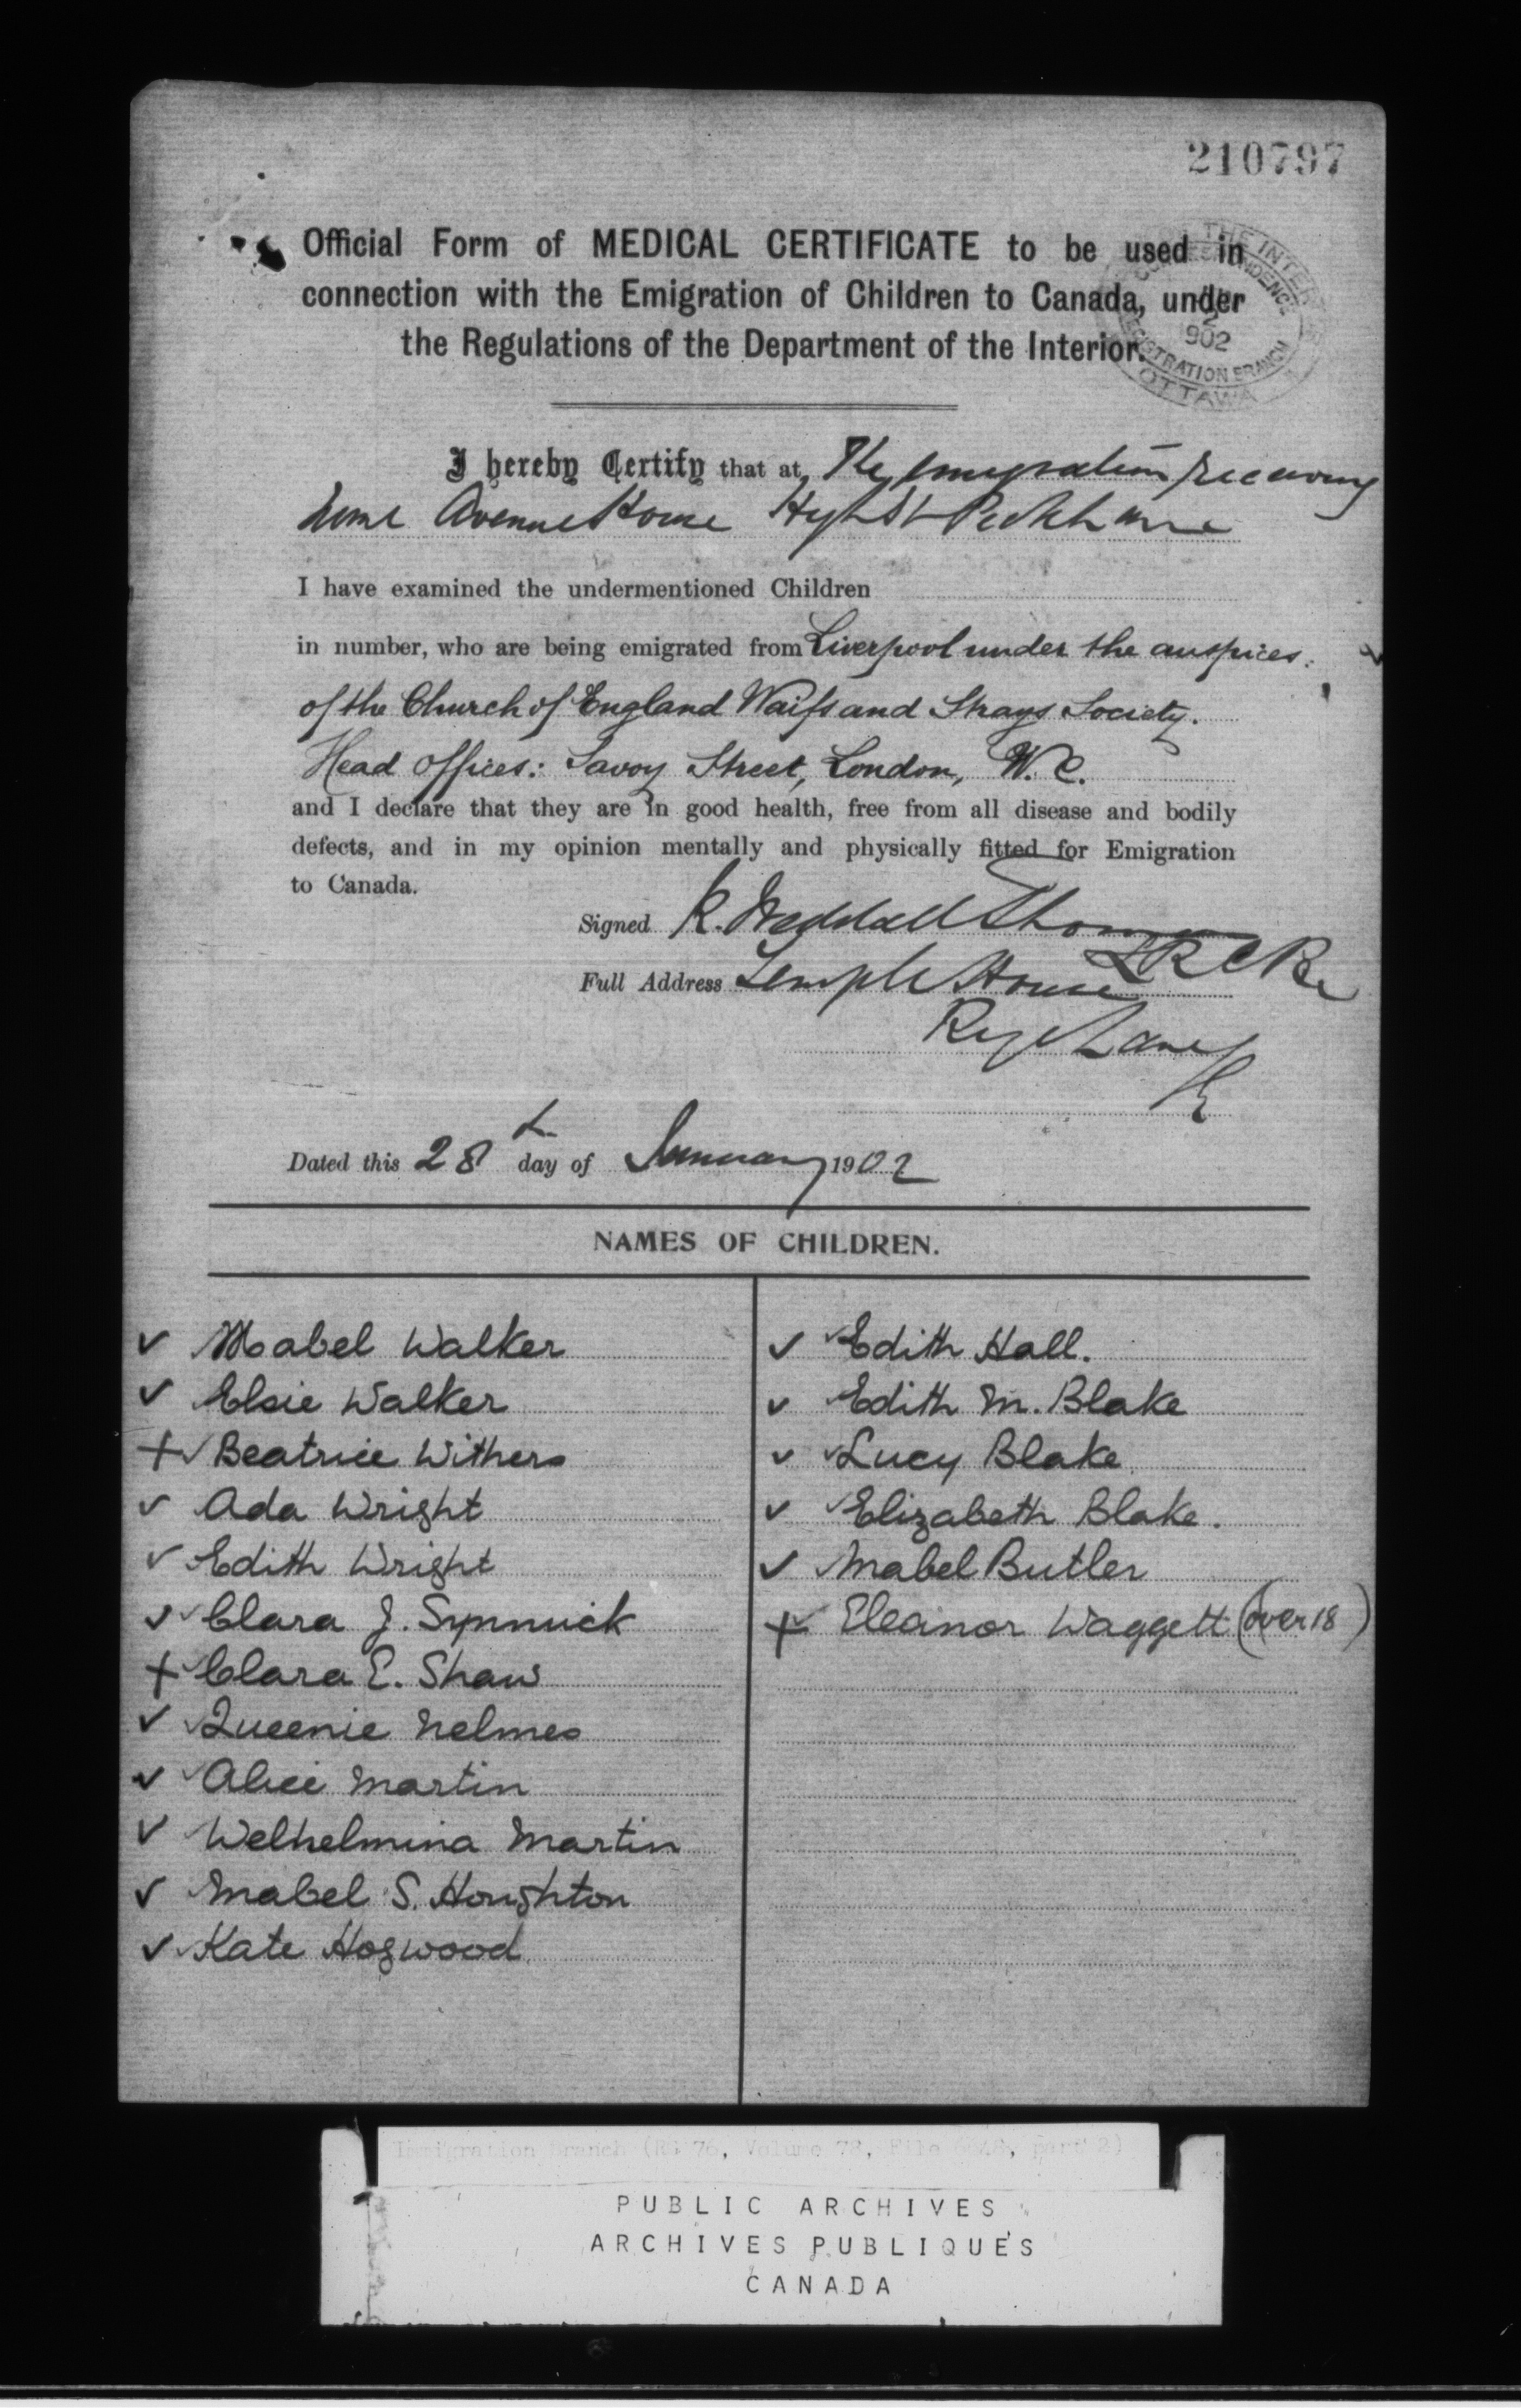 210797
Official Form of MEDICAL CERTIFICATE to be used in
connection with the Emigration of Children to Canada, under
the Regulations of the Department of the Interior.
THE INTERIOR
CORRESPONDENCE
2
1902
REGISTRATION BRANCH
OTTAWA
I hereby Certify that at The Emigration Receiving
home Avenue House High St Peckham
I have examined the undermentioned Children
in number, who are being emigrated from Liverpool under the auspices
of the Church of England Waifs and Strays Society.
Head Offices: Savoy Street, London, W.C.
and I declare that they are in good health, free from all disease and bodily
defects, and in my opinion mentally and physically fitted for Emigration
to Canada.
Signed R. Thomas
Full Address Temple House
Rye Lane
Dated this 28th day of January 1902
NAMES OF CHILDREN.
✓ Mabel Walker
✓ Elsie Walker
+✓ Beatrice Withers
✓ Ada Wright
✓ Edith Wright
✓✓ Clara J. Synnuck
+✓ Clara E. Shaw
✓✓ Queenie Nelmes
✓✓ Alice Martin
✓ Welhelmina Martin
✓ Mabel S. Houghton
✓✓ Kate Hogwood
✓✓ Edith Hall.
✓ Edith M. Blake
✓✓ Lucy Blake
✓✓ Elizabeth Blake.
✓ Mabel Butler
+✓ Eleanor Waggett (over 18)
Immigration Branch (RG 76, Volume 78, File , part 2)
PUBLIC ARCHIVES
ARCHIVES PUBLIQUES
CANADA